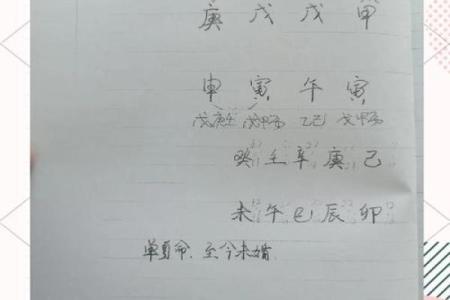 庚 戊 戊 甲
申 寅 午 寅
戊庚壬 戊甲丙 乙己 戊甲丙
癸 壬 辛 庚 己
未 午 巳 辰 卯
单身命、至今未婚